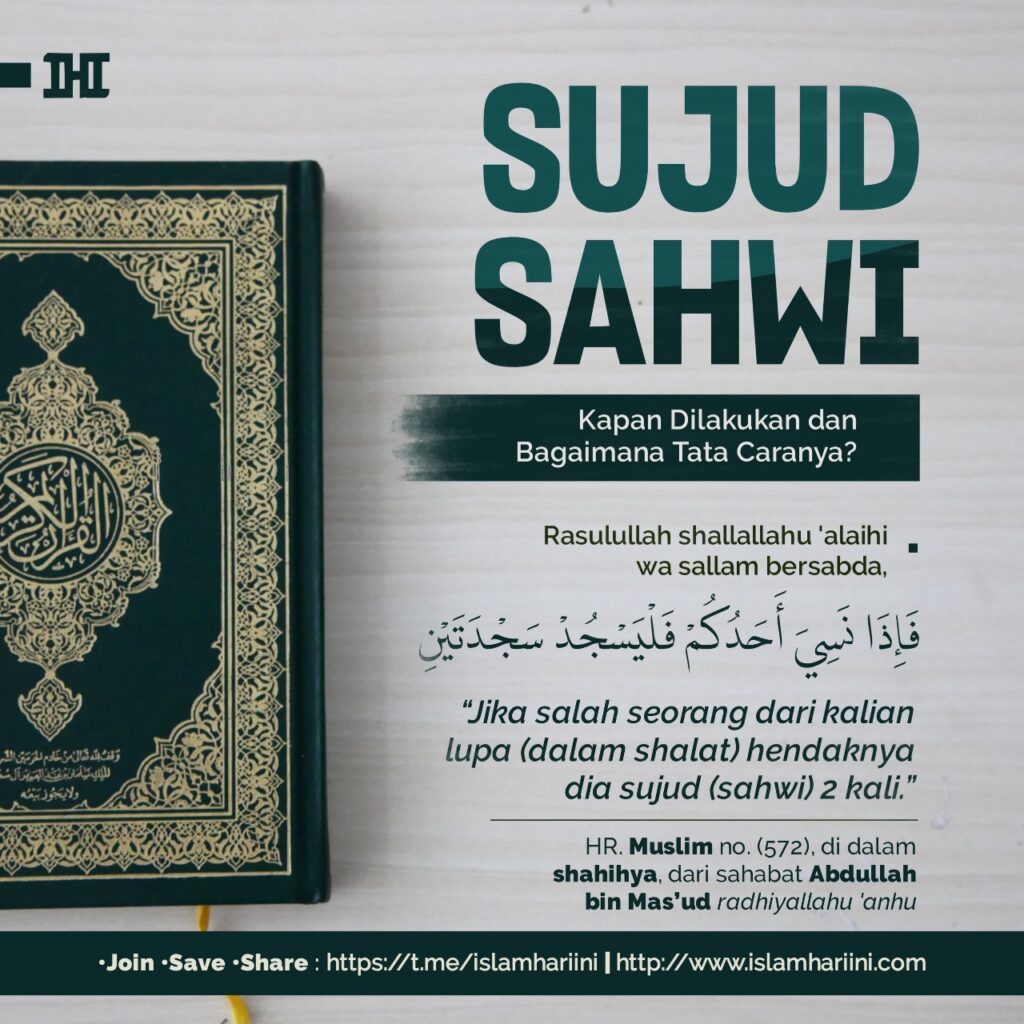 IHI
SUJUD
SAHWI
Kapan Dilakukan dan
Bagaimana Tata Caranya?
Rasulullah shallallahu 'alaihi
wa sallam bersabda,
فَإِذَا نَسِيَ أَحَدُكُمْ فَلْيَسْجُدْ سَجْدَتَيْنِ
“Jika salah seorang dari kalian
lupa (dalam shalat) hendaknya
dia sujud (sahwi) 2 kali.”
HR. Muslim no. (572), di dalam
shahihya, dari sahabat Abdullah
bin Mas’ud radhiyallahu 'anhu
القرآن الكريم
وقف لله تعالى من خادم الحرمين
ولا يجوز بيعه
•Join •Save •Share : https://t.me/islamhariini | http://www.islamhariini.com